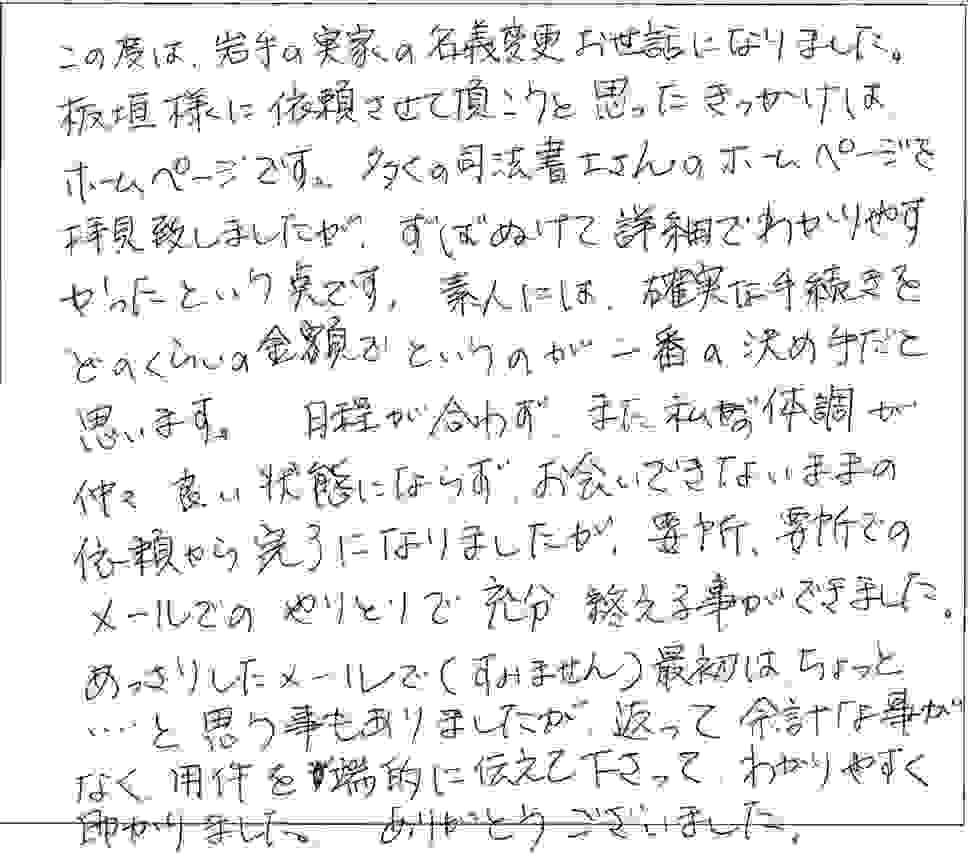 この度は、岩手の実家の名義変更お世話になりました。
板垣様に依頼させて頂こうと思ったきっかけは
ホームページです。多くの司法書士さんのホームページを
拝見致しましたが、ずばぬけて詳細でわかりやす
かったという点です。素人には、確実な手続きを
どのくらいの金額でというのが一番の決め手だと
思います。日程が合わず、また私の体調が
仲々良い状態にならず、お会いできないままの
依頼から完了になりましたが、要所、要所での
メールでのやりとりで充分終える事ができました。
あっさりしたメールで(すみません)最初はちょっと
…と思う事もありましたが、返って余計な事が
なく、用件を端的に伝えて下さって、わかりやすく
助かりました。ありがとうございました。